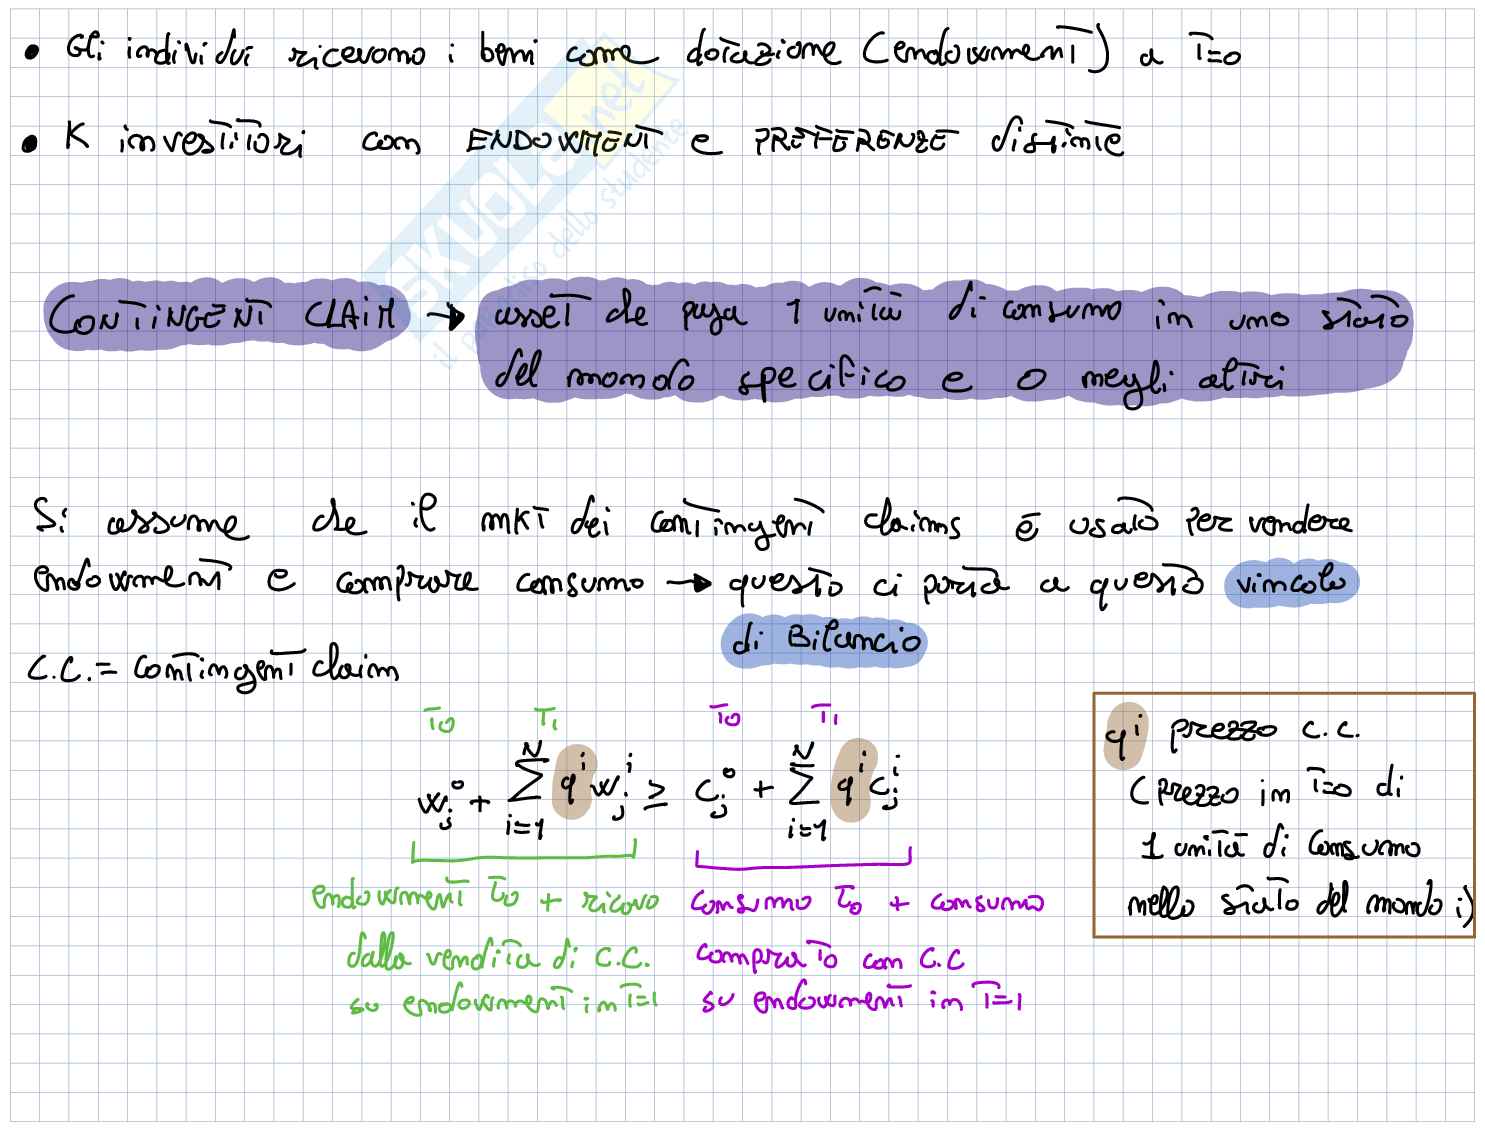 • Gli individui ricevono i beni come dotazione (endowment) a T=0
• K investitori con ENDOWMENT e PREFERENZE distinte
SKUOLA.net
il paradiso dello studente
CONTINGENT CLAIM → asset che paga 1 unità di consumo in uno stato
del mondo specifico e 0 negli altri
Si assume che il MKT dei contingent claims è usato per vendere
endowment e comprare consumo → questo ci porta a questo vincolo
di Bilancio
C.C. = contingent claim
T0 T1 T0 T1
w_j^0 + ∑_{i=1}^N q^i w_j^i ≥ c_j^0 + ∑_{i=1}^N q^i c_j^i
endowment T0 + ricavo
dalla vendita di C.C.
su endowment in T=1
consumo T0 + consumo
comprato con C.C
su endowment in T=1
q^i prezzo c.c.
(prezzo in T=0 di
1 unità di consumo
nello stato del mondo i)